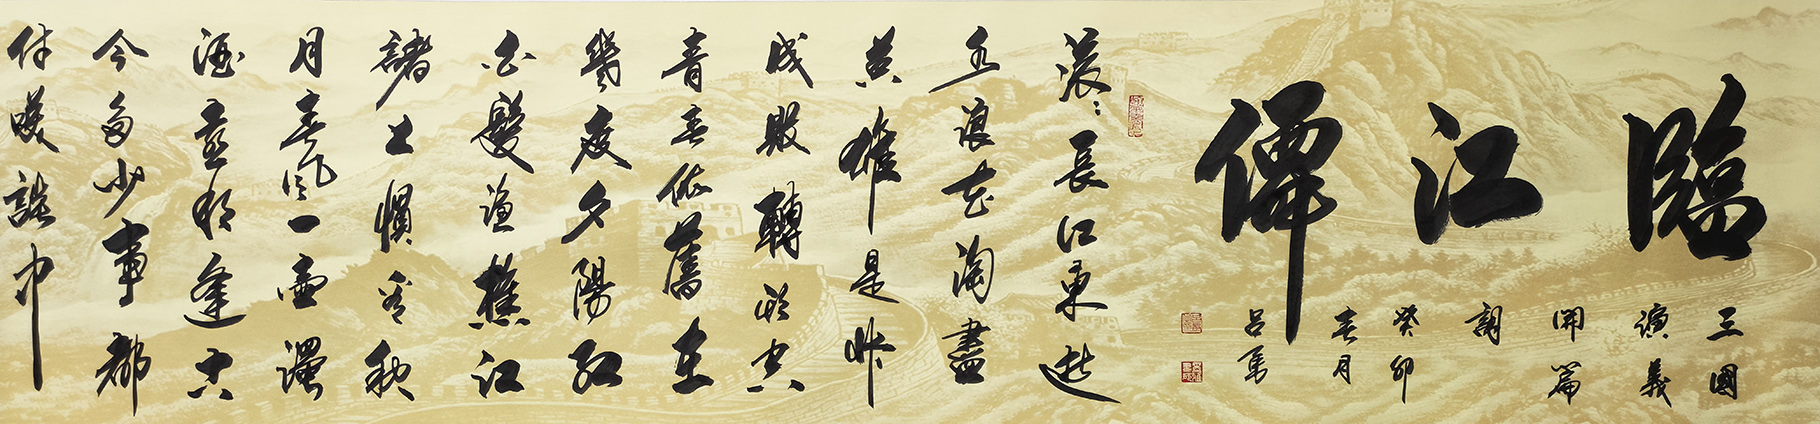 臨江僊
三國
演義
開篇
詞
癸卯
春月
吕
滚滚長江東逝
水浪花淘盡
英雄是非
成敗轉頭空
青春依舊在
幾度夕陽紅
白髮漁樵江
諸上慣看秋
月春風一壺濁
酒喜相逢古
今多少事都
付咲談中